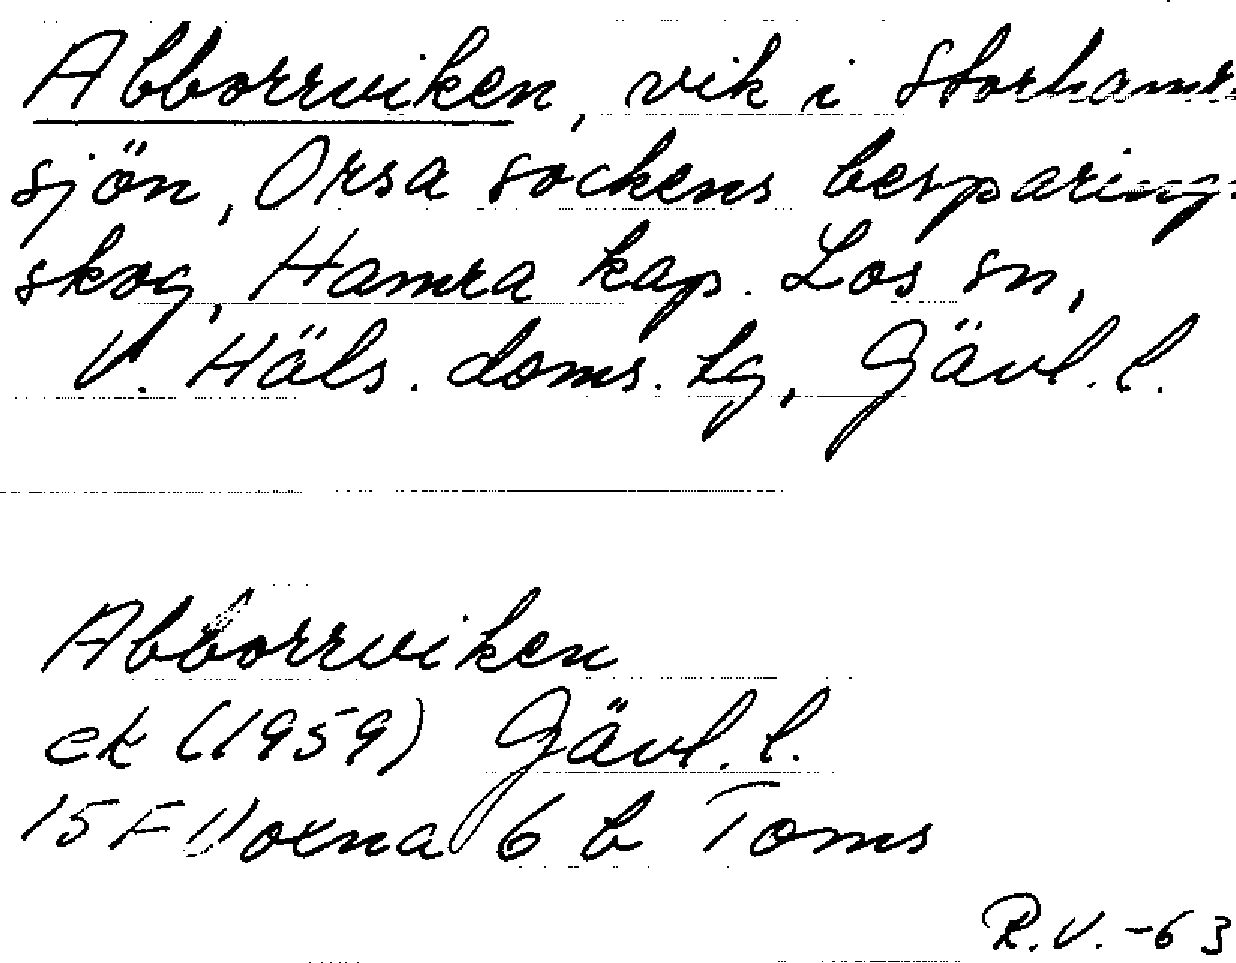 Abborrviken, vik i Storhamra-
sjön, Orsa sockens besparings-
skog, Hamra kap. Los sn,
V. Häls. doms. lg, Gävl. l.
Abborrviken
ek (1959) Gävl. l.
15 F Voxna 6 b Toms
R.V. -63